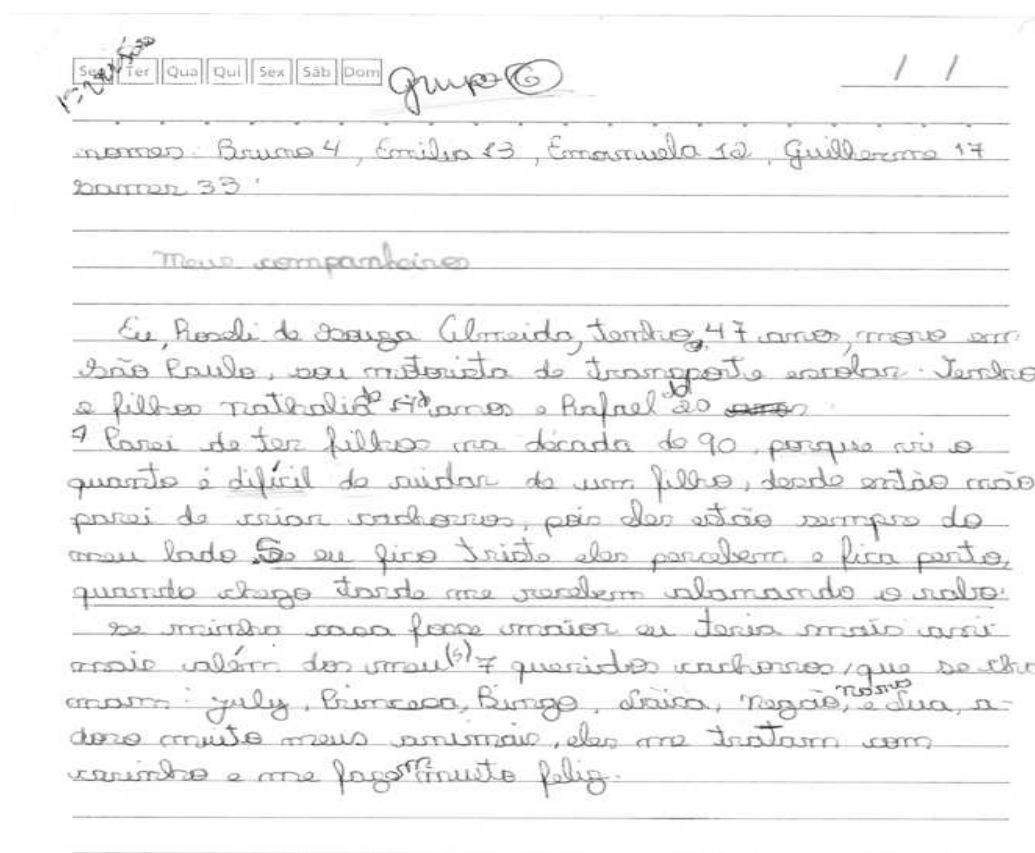 1ª versão
Seg Ter Qua Qui Sex Sáb Dom grupo 6 / /
nomes: Bruno 4, Emilia 13, Emanuela 12, Guilherme 17
Samer 33.
Meus companheiros
Eu, Roseli de Souza Almeida, tenho, 47 anos, moro em
São Paulo, sou motorista de transporte escolar. Tenho
2 filhos nathalia de 17 anos e Rafael de 20 anos
Parei de ter filhos na década de 90, porque vi o
quanto é difícil de cuidar de um filho, desde então não
parei de criar cachorros, pois eles estão sempre do
meu lado. Se eu fico triste eles percebem e fica perto,
quando chego tarde me recebem abanando o rabo.
se minha casa fosse maior eu teria mais ani
mais além dos meu(s) 7 queridos cachorros, que se cha
mam: july, Princesa, Bingo, Laica, negão, nono e Lua, a-
doro muito meus animais, eles me tratam com
carinho e me fazem muito feliz.